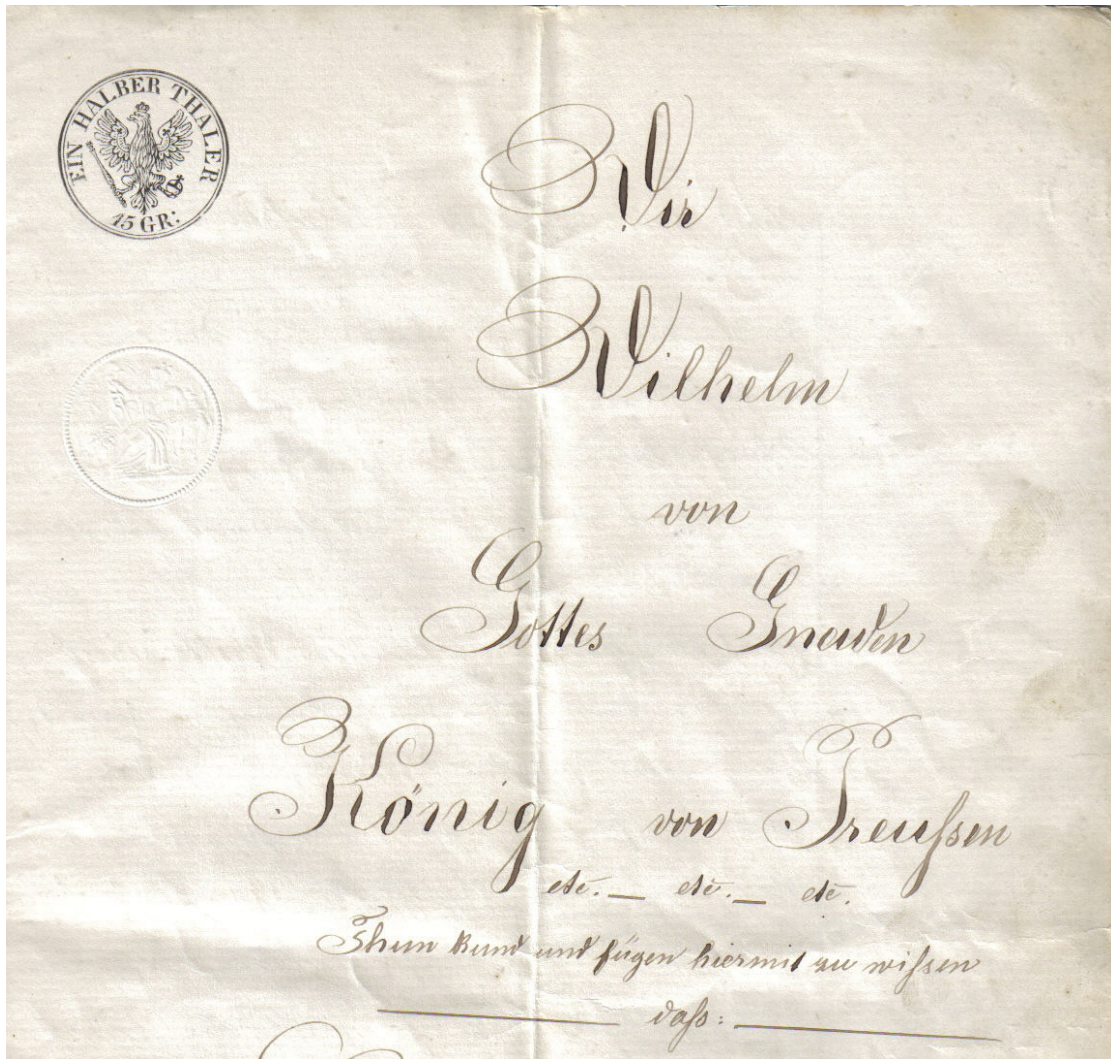 EIN HALBER THALER
15 GR:
Wir
Wilhelm
von
Gottes Gnaden
König von Preußen
etc. — etc. — etc.
Thun kund und fügen hiermit zu wißen
daß: